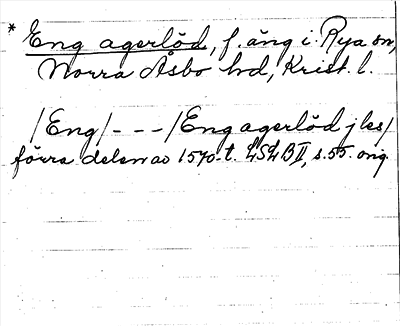 * Eng agerlöd, f. äng i Rya sn,
Norra Åsbo hd, Krist. l.
/Eng/ - - - /Eng agerlöd jles/
förra delen av 1570-t. LSLB II, s. 55. orig.